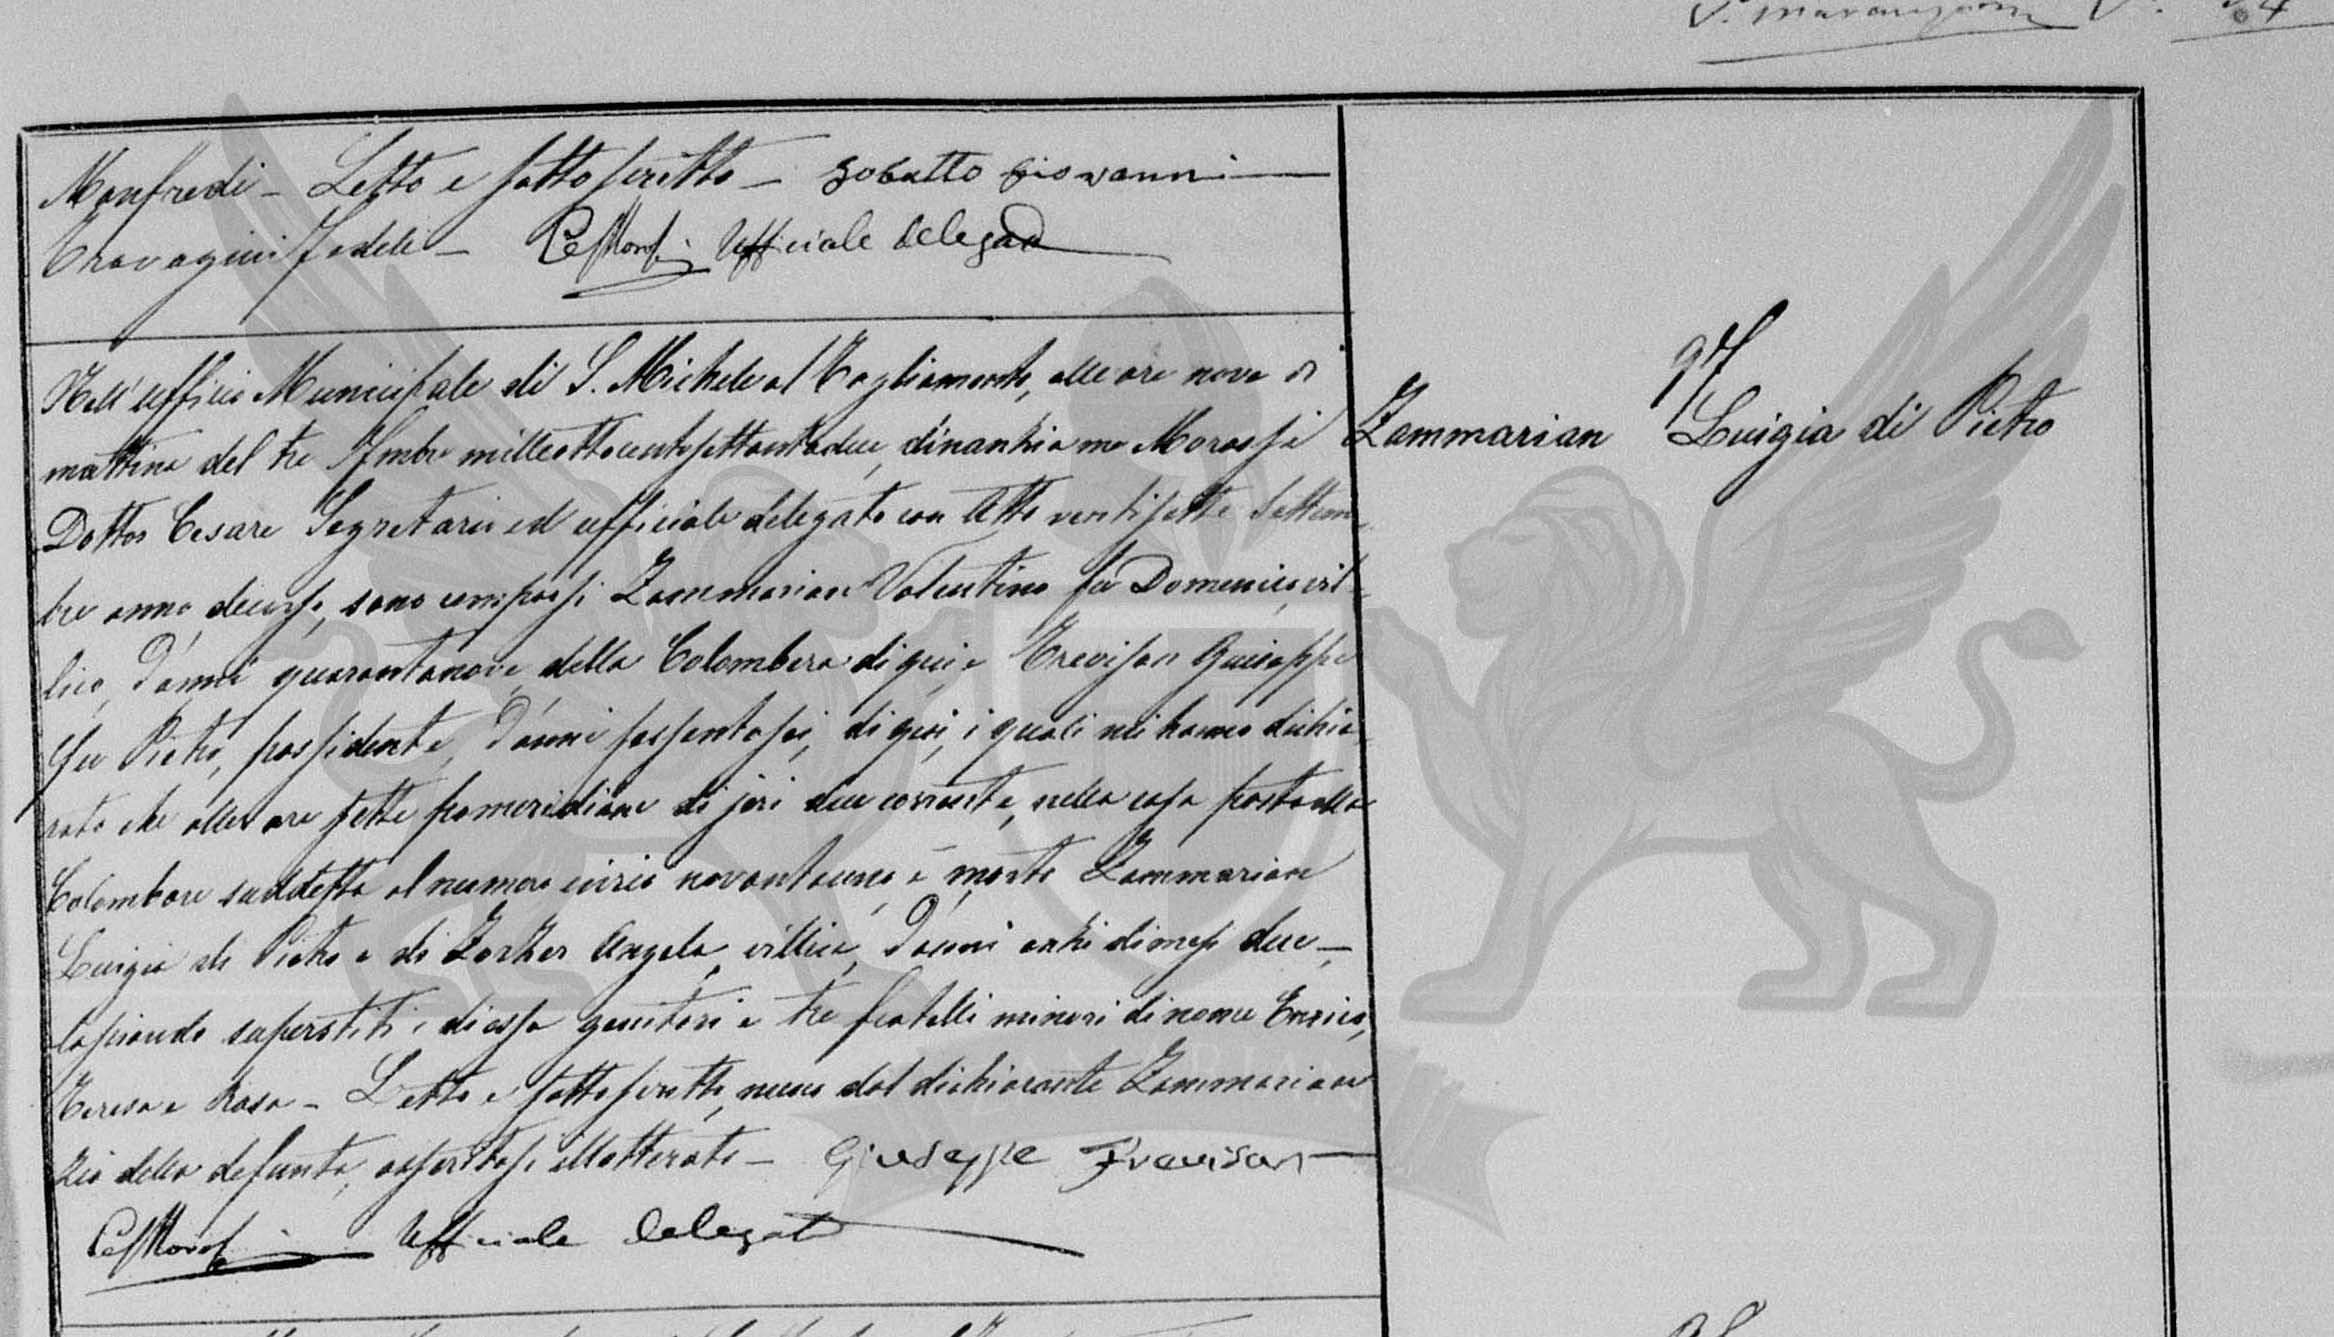 V. Marangoni
Manfredi – Letto e sottoscritto – Gobatto Giovanni
Travagini Fedeli – Ufficiale Delegato
Nell'Ufficio Municipale di S. Michele al Tagliamento, alle ore nove di
mattina del tre 9mbre milleottocentosettantadue, dinanzi a me Morossi
Dottor Cesare Segretario ed ufficiale delegato con Atto ventisette Settem-
bre anno decorso, sono comparsi Zammarian Valentino fu Domenico, vil-
lico, d'anni quarantanove, della Colombera di qui, e Trevisan Giuseppe
fu Pietro, possidente, d'anni sessantasei, di qui, i quali mi hanno dichia-
rato che alle ore sette pomeridiane di jeri due corrente, nella casa posta alla
Colombare suddetta al numero civico novantauno, è morta Zammarian
Luigia di Pietro e di Angela, villica, d'anni anzi di mesi due –
lasciando superstiti i di essa genitori e tre fratelli minori di nome Enrico,
Teresa e Rosa – Letto e sottoscritto, meno dal dichiarante Zammarian
zio della defunta, assertosi illetterato – Giuseppe Trevisan
Ufficiale Delegato
97
Zammarian Luigia di Pietro